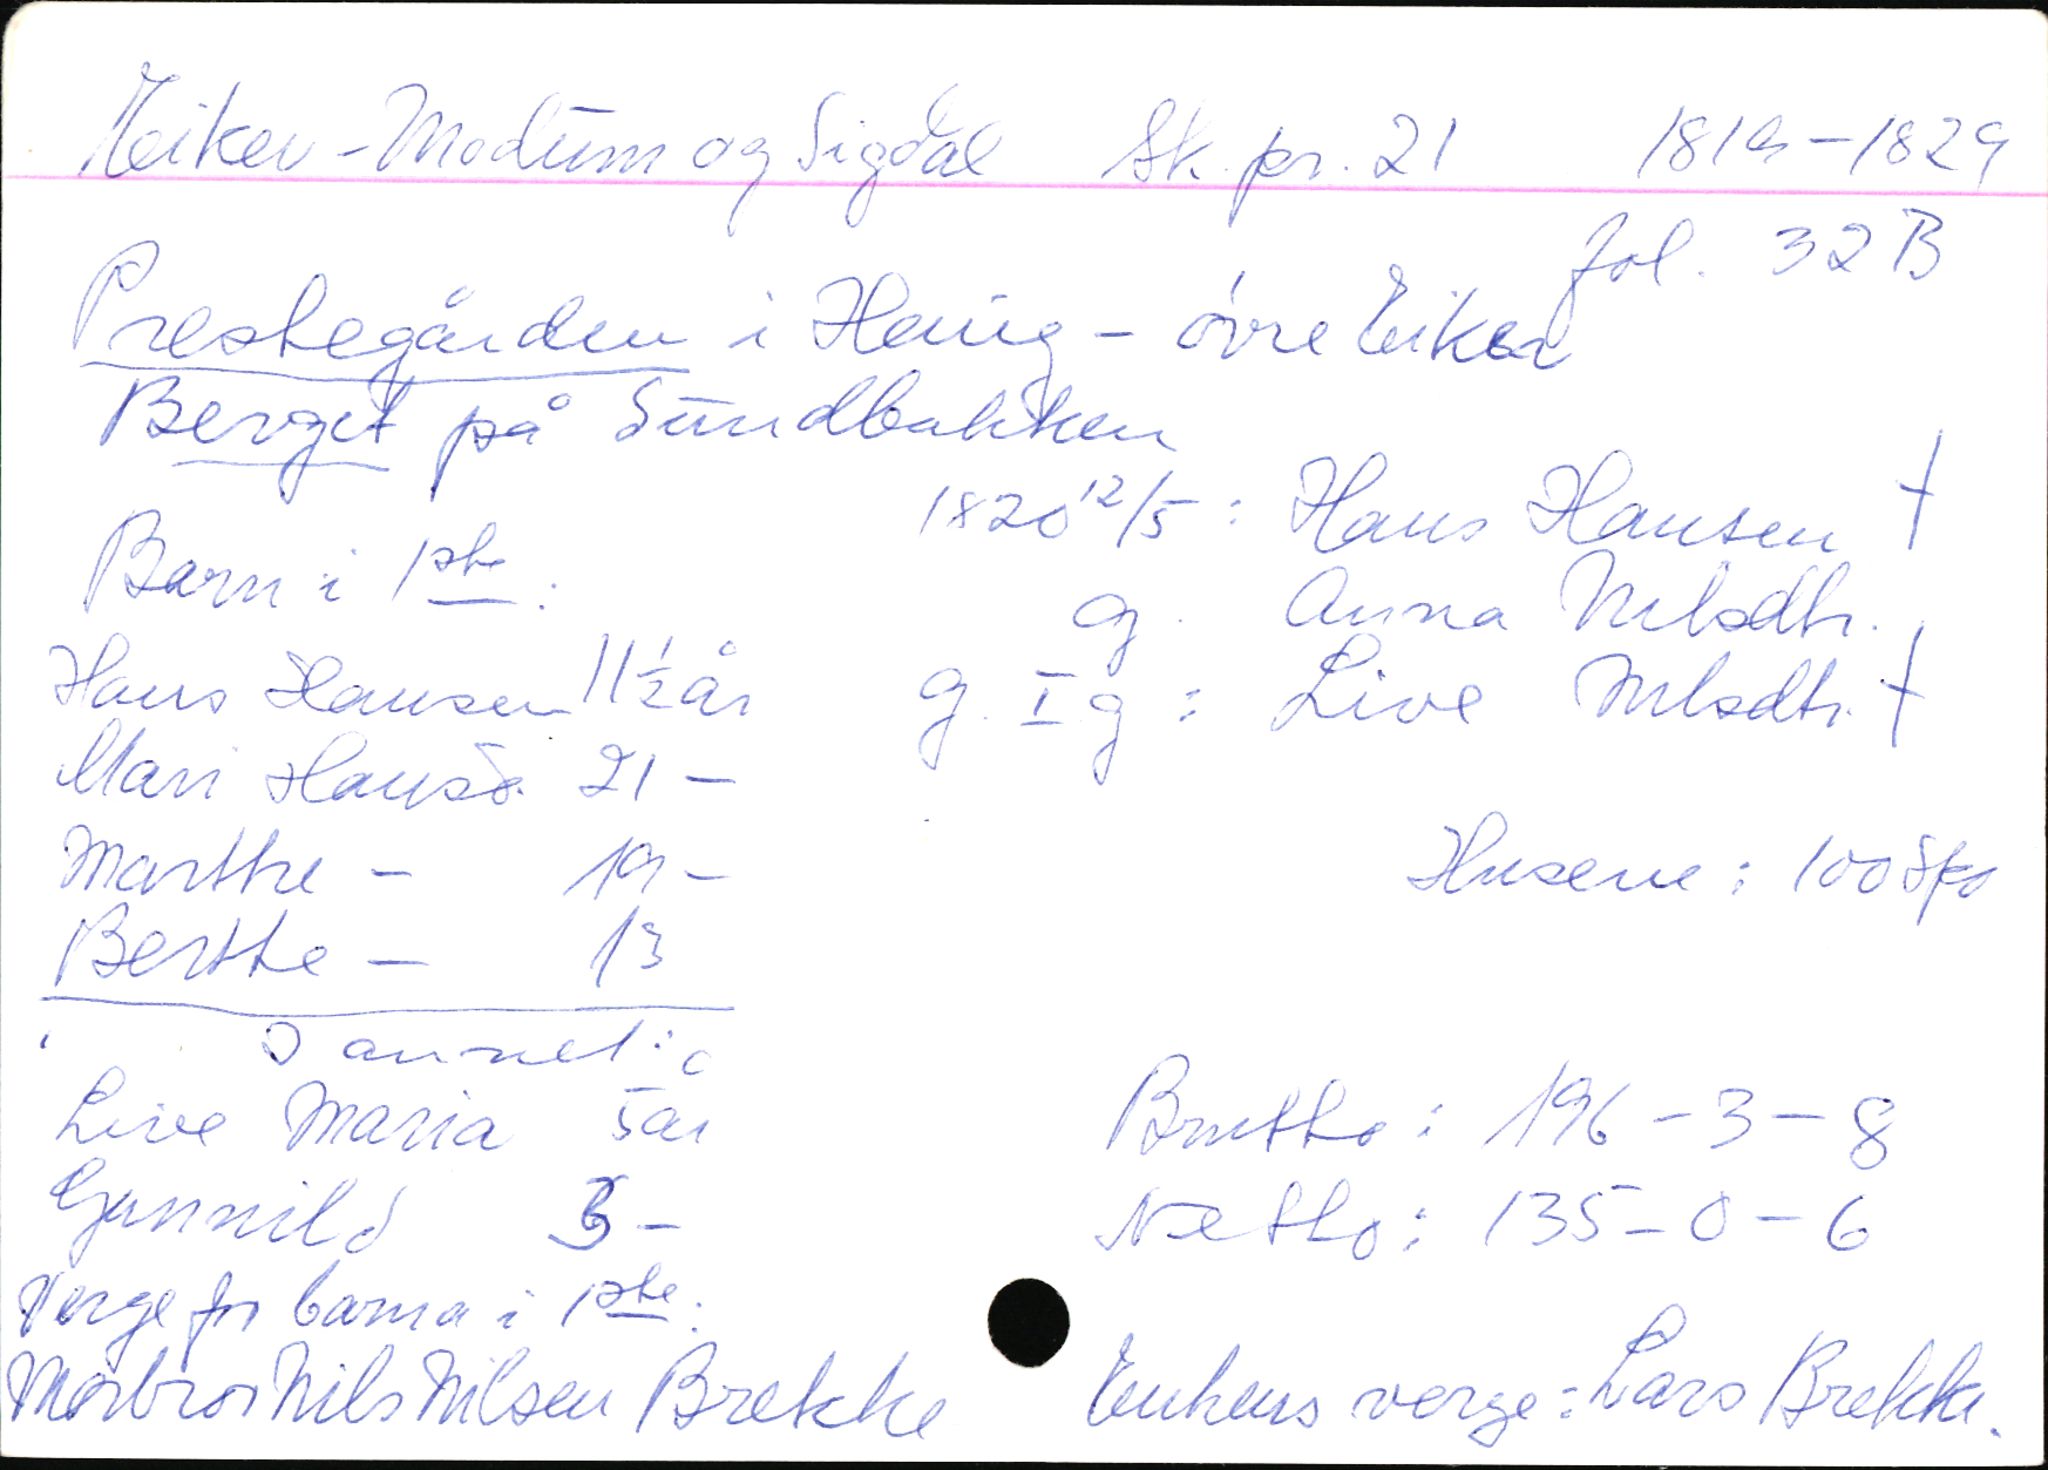 Eiker - Modum og Sigdal Sk. pr. 21 1819 - 1829
fol. 32 B
Prestegården i Haug - øvre Eiker
Berget på Sundbakken
1820 12/5 : Hans Hansen †
g. Anna Nilsdtr.
g. I g : Live Nilsdtr. †
Barn i 1ste :
Hans Hansen 11 1/2 år
Mari Hansd. 21 -
Marthe - 19 -
Berthe - 13
I annet :
Live Maria 5 år
Gunnild 3 -
Verge for barna i 1ste :
Morbror Nils Nilsen Brekke
Husene : 100 Spd
Brutto : 196 - 3 - 8
Netto : 135 - 0 - 6
Enkens verge : Lars Brekke.